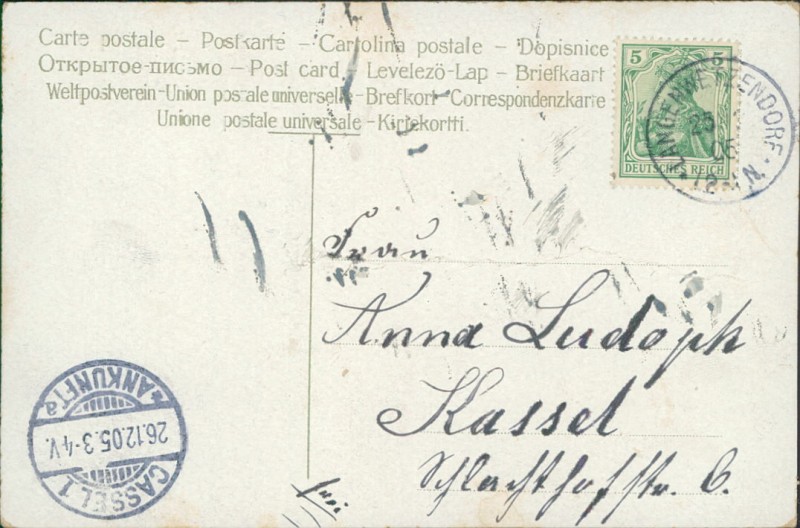 Carte postale – Postkarte – Cartolina postale – Dopisnice
Открытое-письмо – Post card – Levelező-Lap – Briefkaart
Weltpostverein-Union postale universelle-Brefkort-Correspondenzkarte
Unione postale universale – Kirtekortti.
5 5
DEUTSCHES REICH
LANGENWETZENDORF
25
05
N
Frau
Anna Ludoph
Kassel
Schlachthofstr. 6.
CASSEL 1
26.12.05. 3-4 V.
*ANKUNFT a